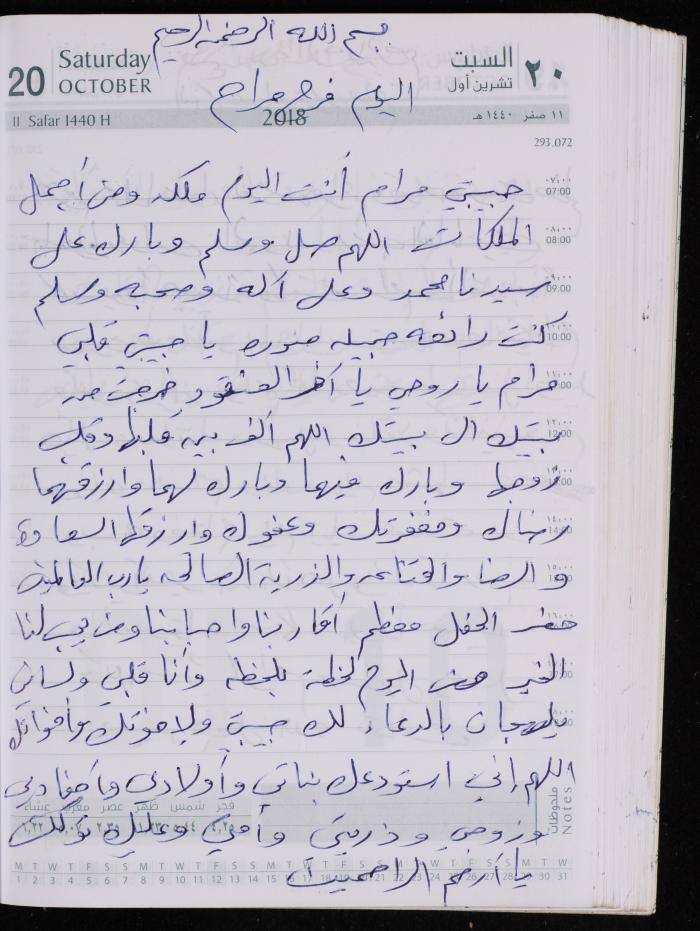 بسم الله الرحمن الرحيم
20 Saturday OCTOBER
السبت ٢٠ تشرين أول
اليوم فرح مرام
11 Safar 1440 H 2018 ١١ صفر ١٤٤٠ هـ
293.072
حبيبتي مرام أنت اليوم ملكه ومن أجمل
٠٧:٠٠ 07:00
الملكات اللهم صل وسلم وبارك على
٠٨:٠٠ 08:00
سيدنا محمد وعلى آله وصحبه وسلم
٠٩:٠٠ 09:00
كنت رائعه جميله منوره يا حبيبتي قلبي
١٠:٠٠ 10:00
مرام يا روحي يا آخر العنقود خرجت من
١١:٠٠
بيتك الى بيتك اللهم ألف بين قلبها وقلب
١٢:٠٠ 12:00
زوجها وبارك فيهما وبارك لهما وارزقهما
رضاك ومغفرتك وعفوك وارزقها السعادة
١٤:٠٠
والرضا والذرية الصالحه يا رب العالمين
١٥:٠٠
حضر الحفل معظم أقاربنا واحبابنا ومن يحب لنا
١٦:٠٠
الخير اليوم لحظة بلحظه وأنا قلبي ولساني
بالدعاء لك حبيبتي ولاخوتك وأخواتك
١٨:٠٠
اللهم إني استودعك بناتي وأولادي وأحفادي
وزوجي وذريتي وأمي وعليك توكلت
يا أرحم الراحمين
فجر شمس ظهر عصر مغرب عشاء
ملحوظات Notes
M T W T F S S M T W T F S S M T W T F S S M T W T F S S M T W
1 2 3 4 5 6 7 8 9 10 11 12 13 14 15 16 17 18 19 20 21 22 23 24 25 26 27 28 29 30 31